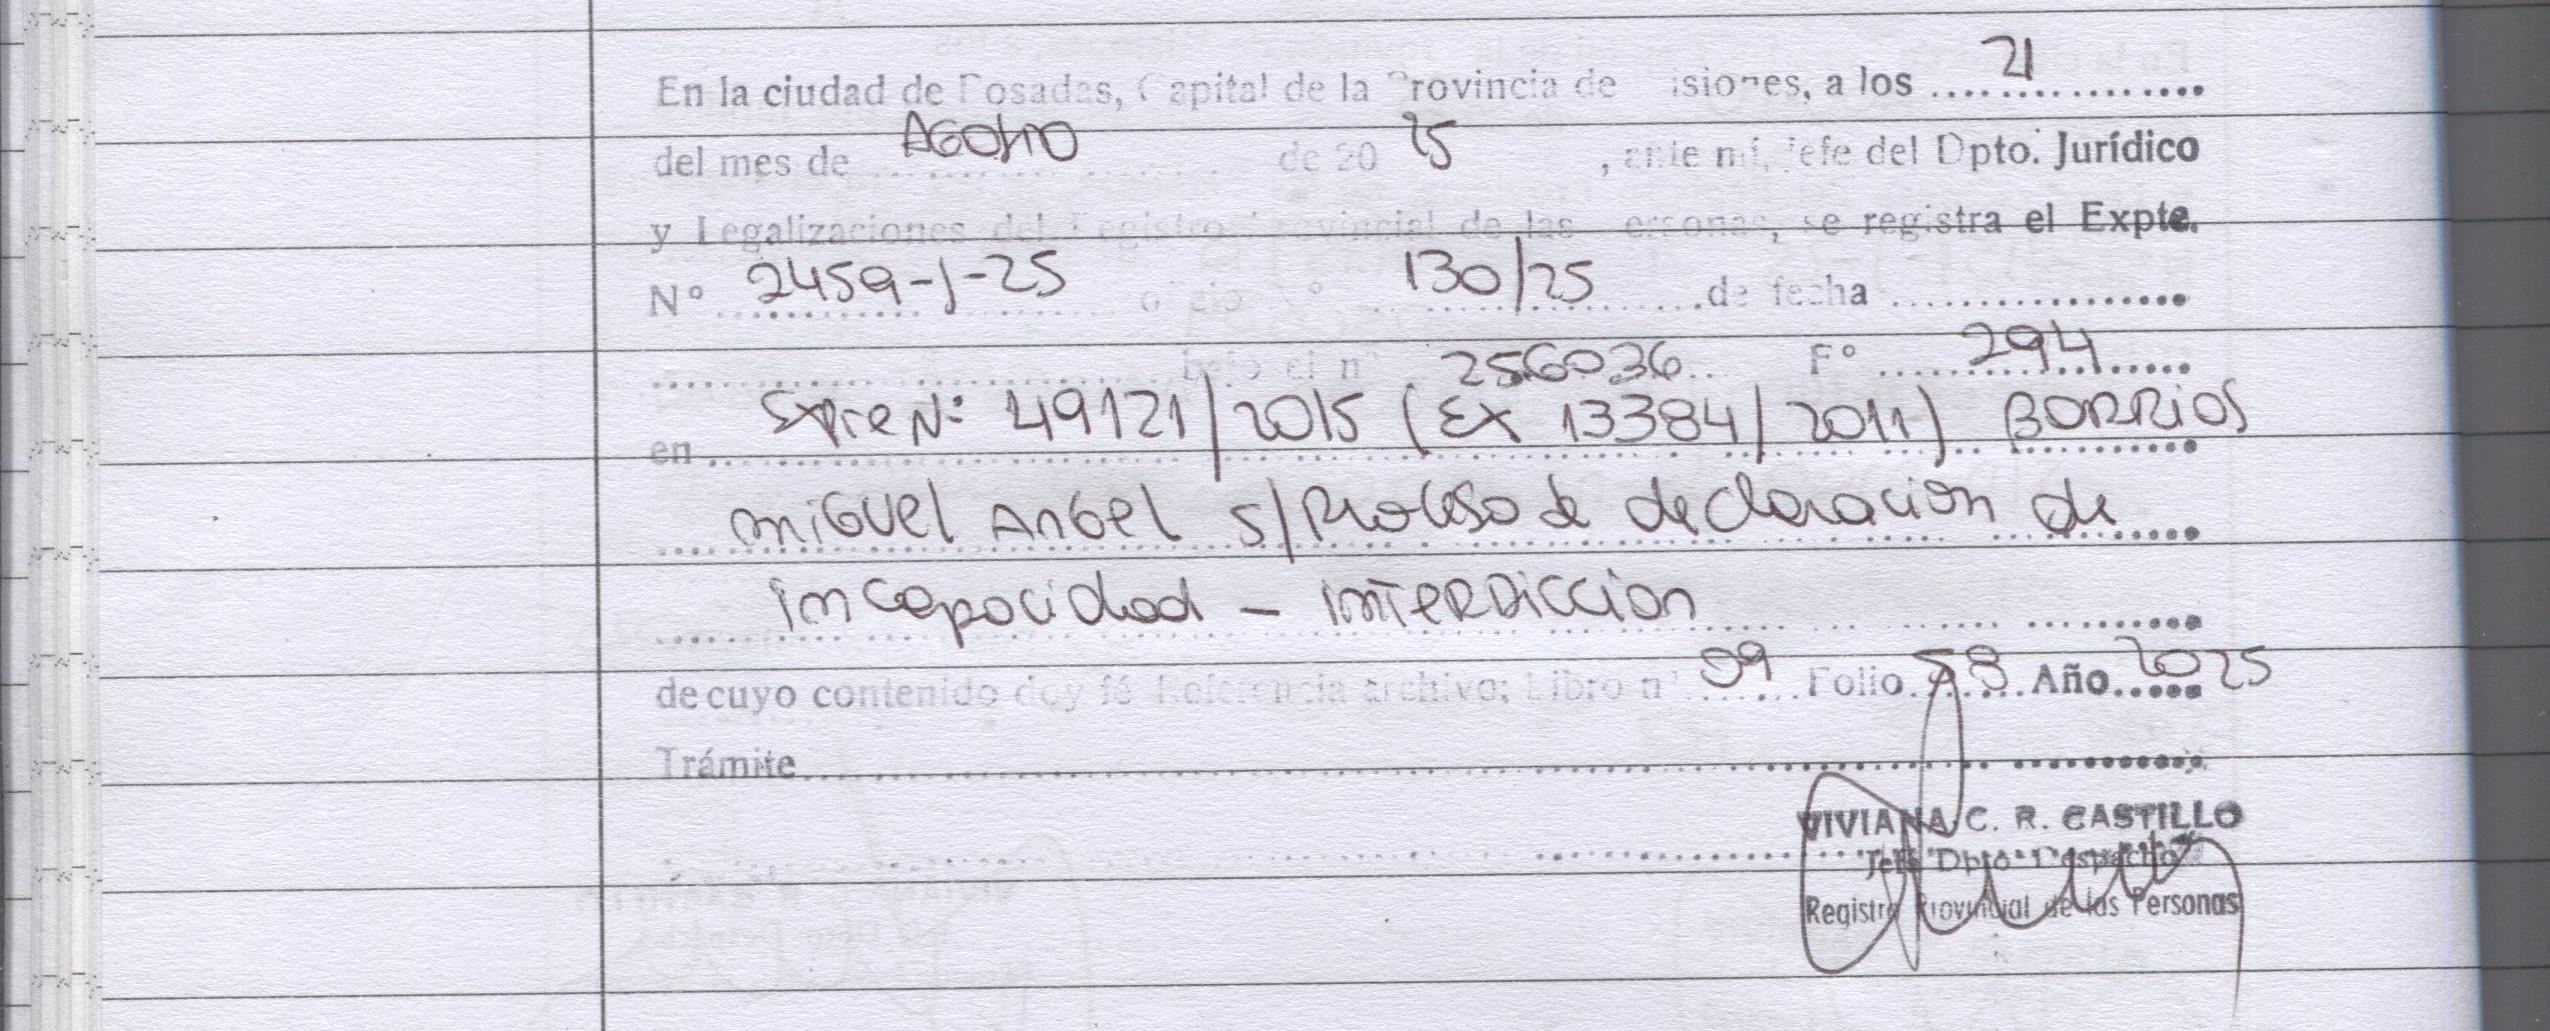 En la ciudad de Posadas, Capital de la Provincia de Misiones, a los 21
del mes de AGOSTO de 20 25, ante mí, Jefe del Dpto. Jurídico
y Legalizaciones del Registro Provincial de las Personas, se registra el Expte.
Nº 2459-J-25 oficio nº 130/25 de fecha
bajo el nº 256036 Fº 294
en Expte Nº 49121/2015 (EX 13384/2011) BORRIOS
miguel Angel s/Proceso de declaracion de
incapacidad - interdiccion
de cuyo contenido doy fé Referencia archivo; Libro nº 09 Folio 58 Año 2025
Trámite
VIVIANA C. R. CASTILLO
Jefa Dpto. Despacho
Registro Provincial de las Personas